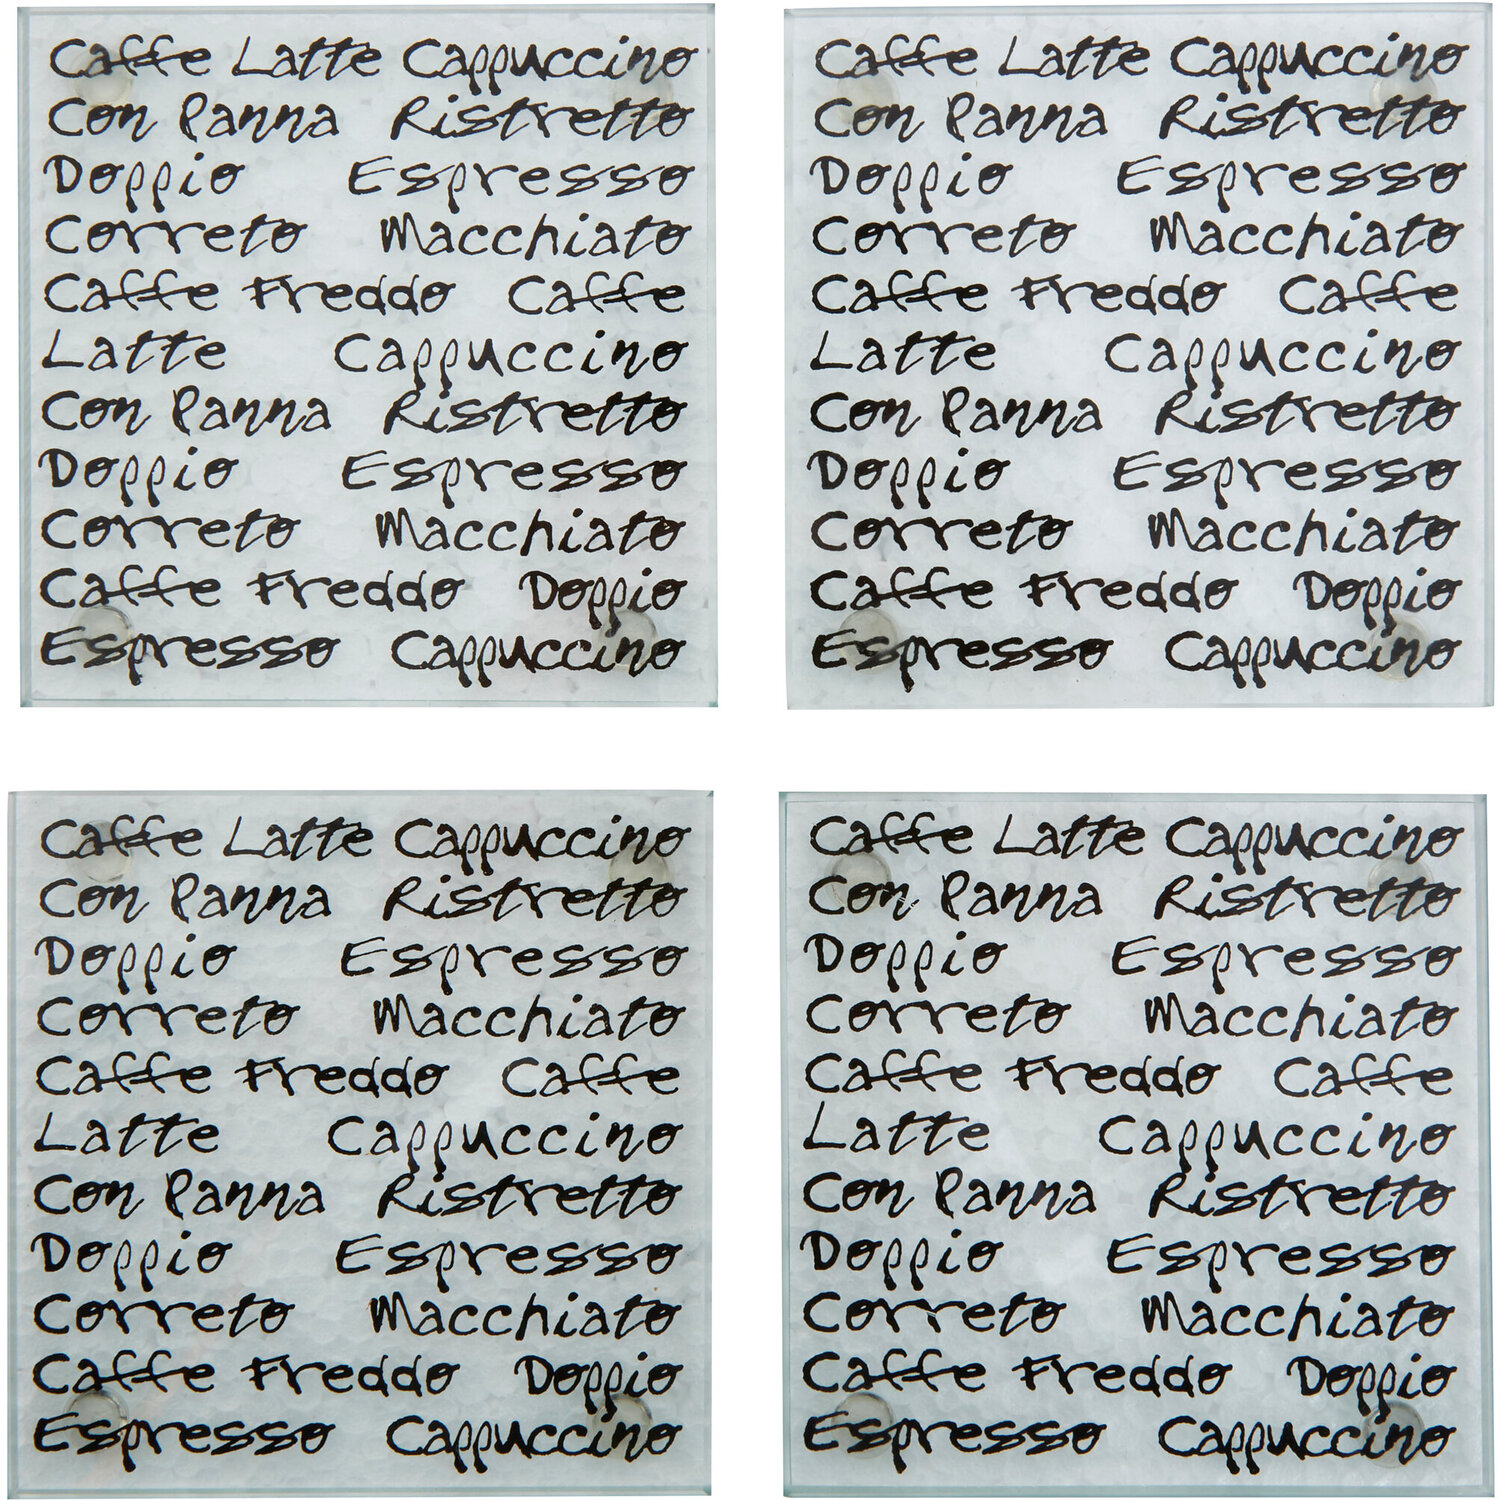 Caffe Latte Cappuccino
Con Panna Ristretto
Doppio Espresso
Correto Macchiato
Caffe Freddo Caffe
Latte Cappuccino
Con Panna Ristretto
Doppio Espresso
Correto Macchiato
Caffe Freddo Doppio
Espresso Cappuccino
Caffe Latte Cappuccino
Con Panna Ristretto
Doppio Espresso
Correto Macchiato
Caffe Freddo Caffe
Latte Cappuccino
Con Panna Ristretto
Doppio Espresso
Correto Macchiato
Caffe Freddo Doppio
Espresso Cappuccino
Caffe Latte Cappuccino
Con Panna Ristretto
Doppio Espresso
Correto Macchiato
Caffe Freddo Caffe
Latte Cappuccino
Con Panna Ristretto
Doppio Espresso
Correto Macchiato
Caffe Freddo Doppio
Espresso Cappuccino
Caffe Latte Cappuccino
Con Panna Ristretto
Doppio Espresso
Correto Macchiato
Caffe Freddo Caffe
Latte Cappuccino
Con Panna Ristretto
Doppio Espresso
Correto Macchiato
Caffe Freddo Doppio
Espresso Cappuccino